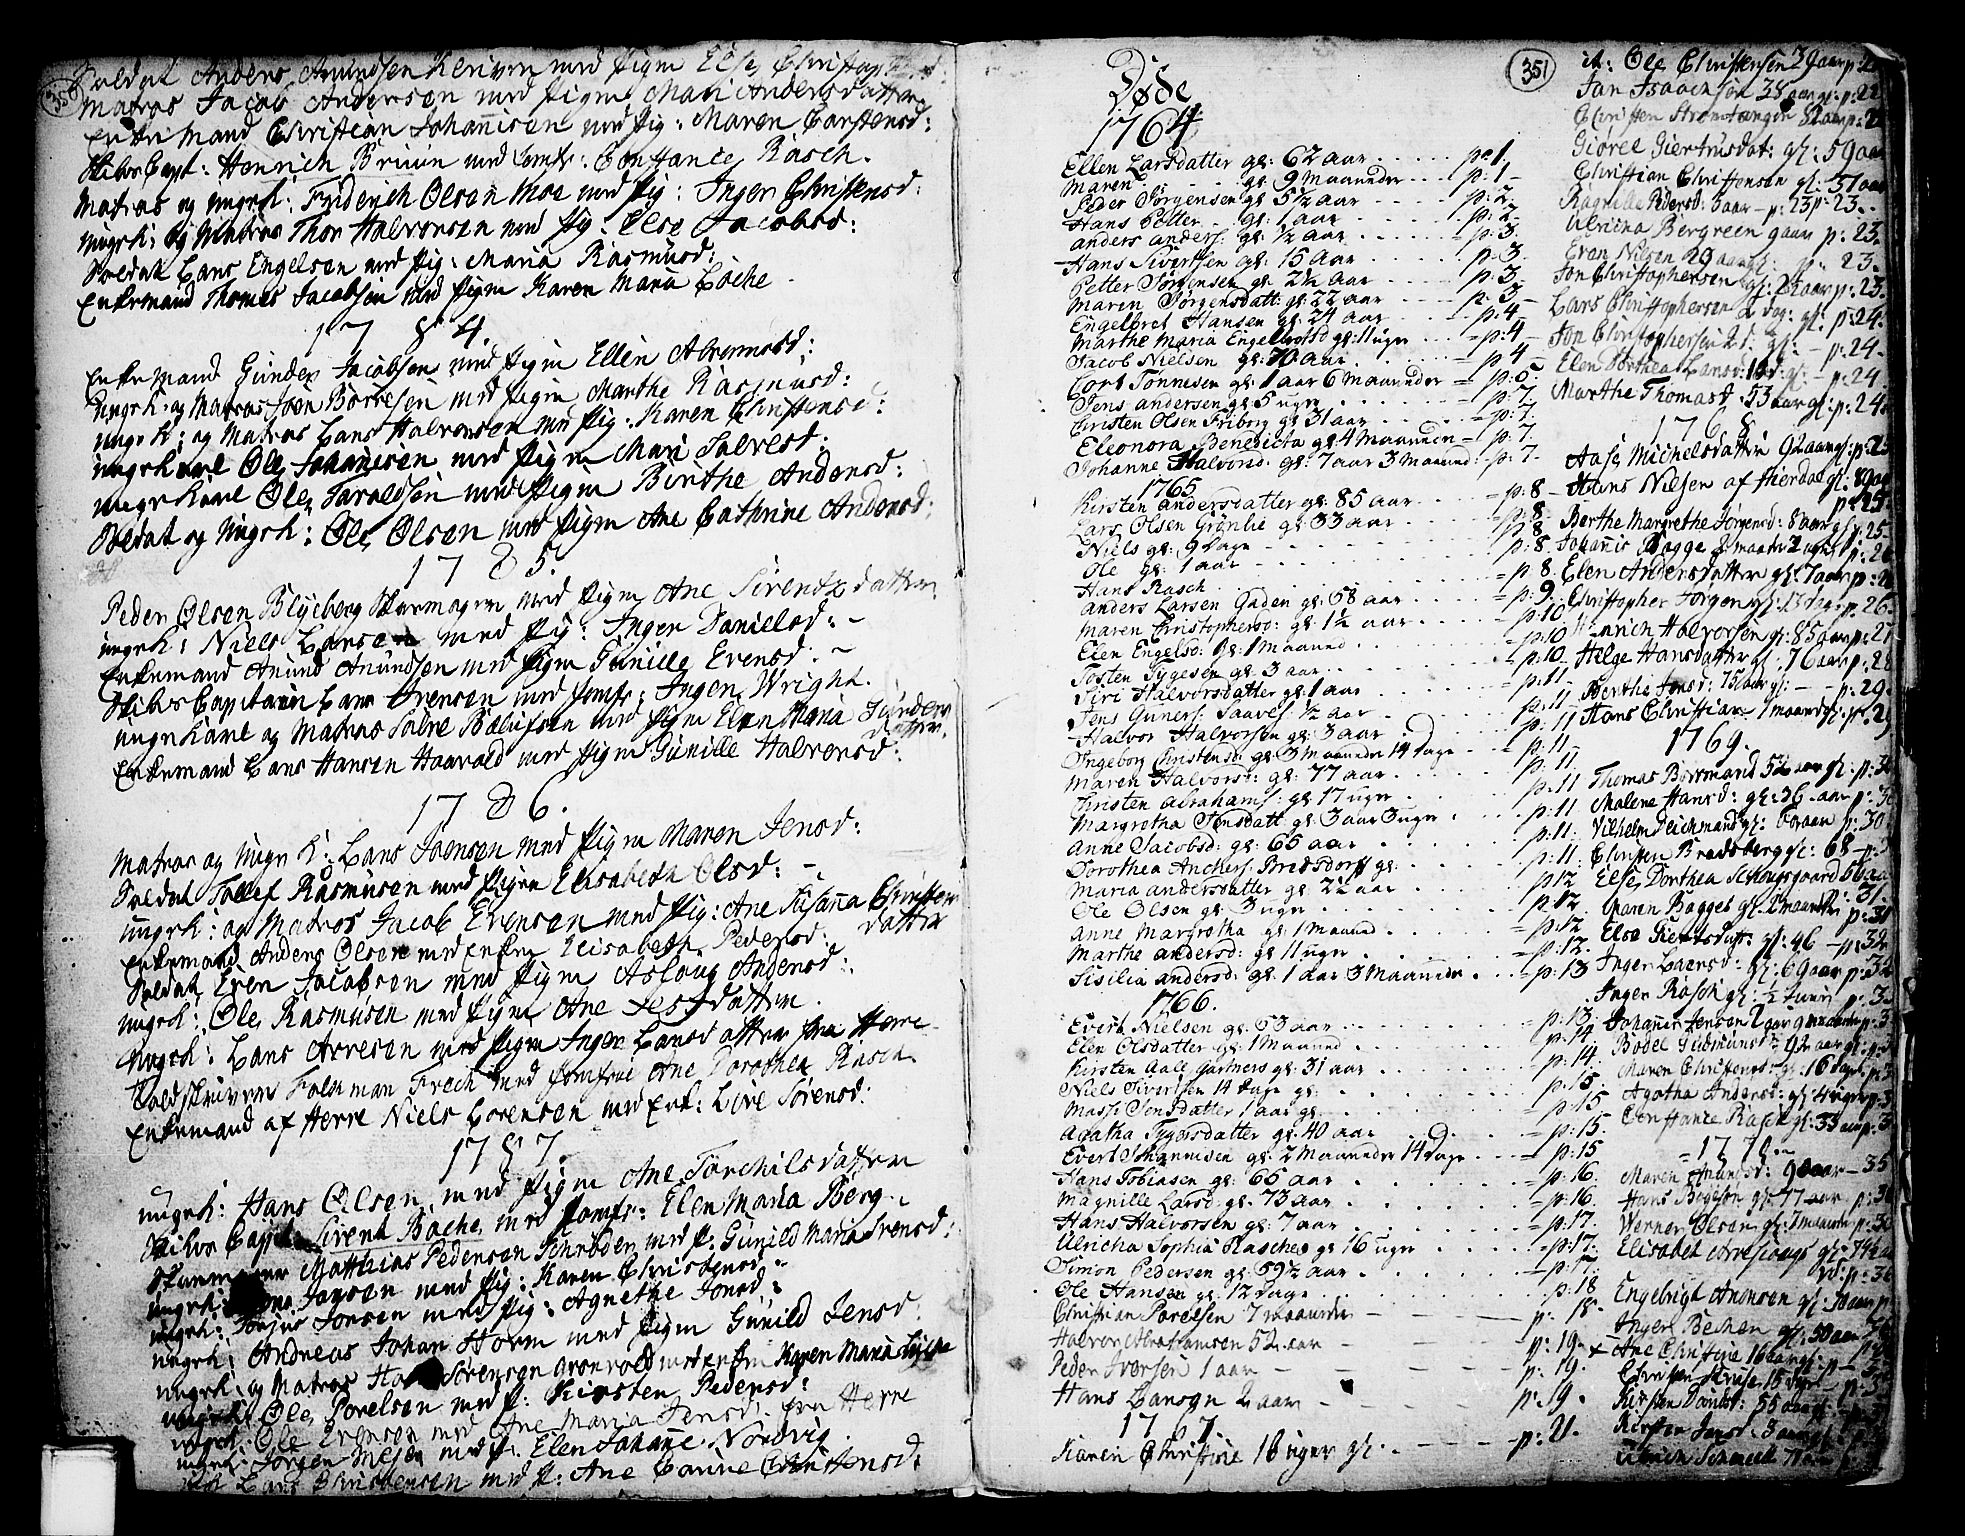 350
Soldat Anders Amundsen Kerivrn med Pigen Else Christophersd:
Matros Jacob Andersen med Pigen Mari Andersdatter
Enke Mand Christian Johannesen med Pig: Maren Carstensd:
Skibs Capt: Henrich Bruun med Jomfr: Constance Rasch.
Matros og ungk: Friderich Olsen Moe med Pig: Inger Christensd:
ungk: og Matros Thor Halvorsen med Pig: Else Jacobsd:
Soldat Lars Engelsen med Pig: Maria Rasmusd:
Enkemand Thomas Jacobsen med Pigen Karen Maria Bache
1784.
Enke Mand Gunder Jacobsen med Pigen Ellen
ungk: og Matros Joen Börresen med Pigen Marthe Rasmusd:
ungk: og Matros Lars Halvorsen med Pig: Karen Christensd:
ungkarl Ole Johannesen med Pigen Mari Salvesd:
ungkarl Ole Taraldsen med Pigen Birthe Andersd:
Soldat og Ungk: Ole Olsen med Pigen Ane Cathrine Andersd:
1785.
Peder Olsen Blyeberg Skomager med Pigen Ane Sirentz datter
ungk: Niels Larsen med Pig: Inger Danielsd:
Enkemand Anund Anundsen med Pigen Gunille Evensd:
Skibs Capitain Lars Svensen med Jomfr: Inger Wright.
ungkarl og Matros Salve med Pigen Elen Maria Gunders
datter.
Enkemand Lars Hansen Haavold med Pigen Gunille Halvorsd:
1786.
Matros og Ungk: Lars Joensen med Pigen Maren Jensd:
Soldat Tollef Rasmusen med Pigen Elisabeth Olsd:
ungk: og Matros Jacob Evensen med Pig: Ane Susanna Christens
datter
Enkemand Anders Olsen med Enken Elisabeth Pedersd:
Soldat Even Jacobsen med Pigen Aslaug Andersd:
ungk: Ole Rasmusen med Pigen Ane datter.
Ungk: Lars Arvesen med Pigen Inger Larsdatter fra Herre
Toldskriveren Folkman Frech med Jomfrue Ane Dorothea Rasch
Enkemand af Herre Niels Lorensen med Enk: Live Sörensd:
1787.
ungk: Hans Olsen med Pigen Ane Torchilsdatter
Skibs Capit: Sirent Bache med Jomfr: Elen Maria Berg
Matthias Pedersen Schröder med P. Gunild Maria Svensd:
ungk: Jansen med Pig: Karen Christensd:
ungk: Jonsen med Pig: Agnethe Jonsd:
ungk: Andreas Johan Horn med Pigen Gunild Jensd:
ungk: og Matros Sörensen Grönvold med Enken Karen Maria
ungk: Ole Povelsen med P: Kirsten Pedersd:
ungk: Ole Evensen med Ane Maria Jensd: fra Herre
ungk: Jörgen med P: Elen Johanne Nordvig.
Lars Christensen med P: Ane Carine Christensd:
351
Døde
1764
Ellen Larsdatter gl: 62 aar p: 1.
Maren gl: 9 maaneder p: 1
Peder Jörgensen gl 5½ aar p: 2
Hans Petter gl: 1 aar p: 2
anders anders: gl: ½ aar p: 3.
Hans Siversen gl: 15 aar p: 3
Petter Jörgensen gl: 2½ aar p: 3.
Maren Jörgensdatt: gl: 22 aar p: 3
Engelbret Hansen gl: 24 aar p: 4
Marthe Maria Engelbretsd gl: 11 uger p: 4
Jacob Nielsen gl: 70 aar p: 4
Cort Tönnesen gl: 1 aar 6 maaneder p: 5.
Jens andersen gl: 5 uger p: 7.
Christen Olsen Friborg gl: 31 aar p: 7.
Eleonora Benedicta gl: 4 maaneder p: 7
Johanne Halvorsd: gl: 7 aar 3 maaned: p: 7
1765
Kirsten andersdatter gl: 85 aar p: 8
Lars Olsen Grönlie gl: 33 aar p: 8
Niels gl: 9 dage p: 8
Ole gl: 1 aar p: 8.
Hans Rasch p: 8
anders Larsen Gaden gl: 58 aar p: 9.
Maren Christophersd: gl: 1½ aar p: 10
Elen Engelsd: gl: 1 maaned p: 10
Tosten Tygesen gl: 3 aar p: 10
Siri Halvorsdatter gl: 1 aar p: 11
Jens Guners: Saaves: ½ aar p: 11
Halvor Halvorsen gl: 3 aar p: 11
Ingeborg Christensd: gl: 3 Maaneder 14 dage p: 11
Maren Halvorsd: gl: 77 aar p: 11
Christen abrahams: gl: 17 uger p: 11
Margretha Jensdatt gl: 3 aar 3 uger p: 11
anne Jacobsd: gl: 65 aar p: 11
Dorothea Anchers: Bredsdorff gl: p: 11
Maria andersdatter gl: 22 aar p 12
Ole Olsen gl: 3 uger p: 12
Anne Margretha gl: 1 maaned p: 12
Marthe andersd: gl: 11 uger p: 12
Sisilia andersd: gl: 1 aar 3 Maaneder p: 13
1766.
Evert Nielsen gl: 53 aar p: 13
Elen Olsdatter gl: 1 Maaned p: 14
Kirsten Aall Gartners gl: 31 aar p: 14.
Niels Siversen 14 dage gl: p: 15
Massi Jensdatter 1 aar gl: p: 15
Agatha Tygersdatter gl: 40 aar p: 15.
Evert Johannesen gl: 2 Maaneder 14 dage p: 15
Hans Tobiasen gl: 65 aar p: 16
Magnille Larsd: gl: 73 aar p: 16
Hans Halvorsen gl: 7 aar p: 17.
Ulricha Sophia Rasches gl 16 uger p: 17.
Simon Pedersen gl: 59½ aar p: 17
Ole Hansen gl: 12 dage p: 18
Christian Povelsen 7 maaneder p: 18.
Halvor Abrahamsen 52 aar p: 19.
Peder Iversen 1 aar p: 19.
Hans Larsen 2 aar p: 19.
1767.
Karen Christine 16 uger gl: p: 21.
it: Ole Christensen 39 aar p: 2
Jan Isaachsen 38 aar gl: p: 22
Christen Strömtangen 82 aar p: 2
Giörel Giertrusdat: gl: 59 aar
Christian Christensen gl: 31 aar
Ragnille Pedersd: 3 aar p: 23 p: 23.
Ulricha Bergreen 9 aar p: 23.
Evan Nilsen 29 aar gl: p: 23.
Jon Christophersen gl: 25 aar p: 23.
Lars Christophersen 2 dag: gl: p: 24.
Jon Christophersen 2 d: gl: p: 24.
Elen Dorthea Larsd: 18 d: gl: p: 24.
Marthe Thomasd: 53 aar gl: p: 24.
1768
Aase Michelsdatter 92 aar gl: p: 25
Hans Nilsen af Hierdal gl: 89 aar
p: 25
Berthe Margrethe Jörgensd: 8 aar gl p: 25.
Johannis Bagge 2 maaned 2 uger p: 2
Elen Andersdatter gl: 7 aar p: 2
Christopher Jörgens gl: 13 dag p: 26.
Henrich Halvorsen gl: 85 aar p: 27
Helge Hansdatter gl: 76 aar p: 28
Berthe Jonsd: 75 aar gl: p: 29.
Hans Christian 1 maaned gl: p: 29
1769.
Thomas Borremand 52 aar gl: p: 30
Malene Hansd: gl: 36 aar p: 30
Vilhelm Deichmand gl: aar p: 30
Christen Bredsberg gl: 68 p:
Else Dorthea Schougaard 66 aar
p: 31.
Karen Bagges gl: 2 maaneder p: 31
Else Giertsdatt: gl: 46 p: 32
Inger Larsd: gl: 69 aar p: 32
Inger Rasch gl: ½ time p: 3
Johannes Jensen 2 aar 9 maaneder p: 3
Bodel Gudmunsd: 92 aar gl: p: 3
Maren Christensd: gl: 16 dage p: 3
Agatha Andersd: gl: 4 uger p: 3
Constance Rasch gl: 33 aar p: 3
1770
Maren Amundsd: 90 aar 35
Hans Bigeson gl: 77 aar p: 36
Werner Olsen gl: 7 maaneder p: 36
Elisabet gl: 74½ aar
p: 36
Engebrigt Anonsen gl: 70 aar p
Inger Becken gl: 50 aar
Ane Christine 16 aar gl: p
Christen 15 dage p:
Kirsten Davidsd: 55 aar p:
Kirsten Jonsd: 3 aar gl:
Ulrich Schmidt